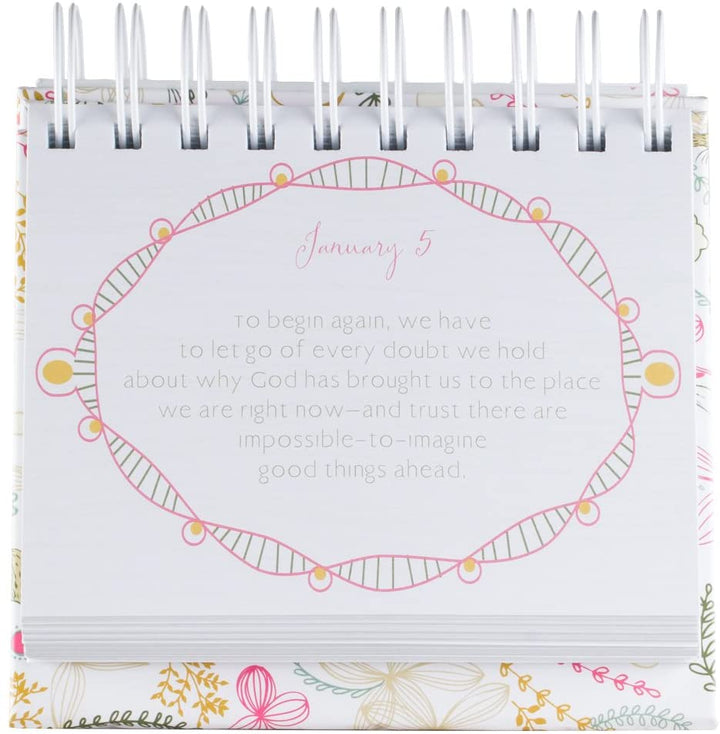 January 5
To begin again, we have
to let go of every doubt we hold
about why God has brought us to the place
we are right now—and trust there are
impossible-to-imagine
good things ahead.